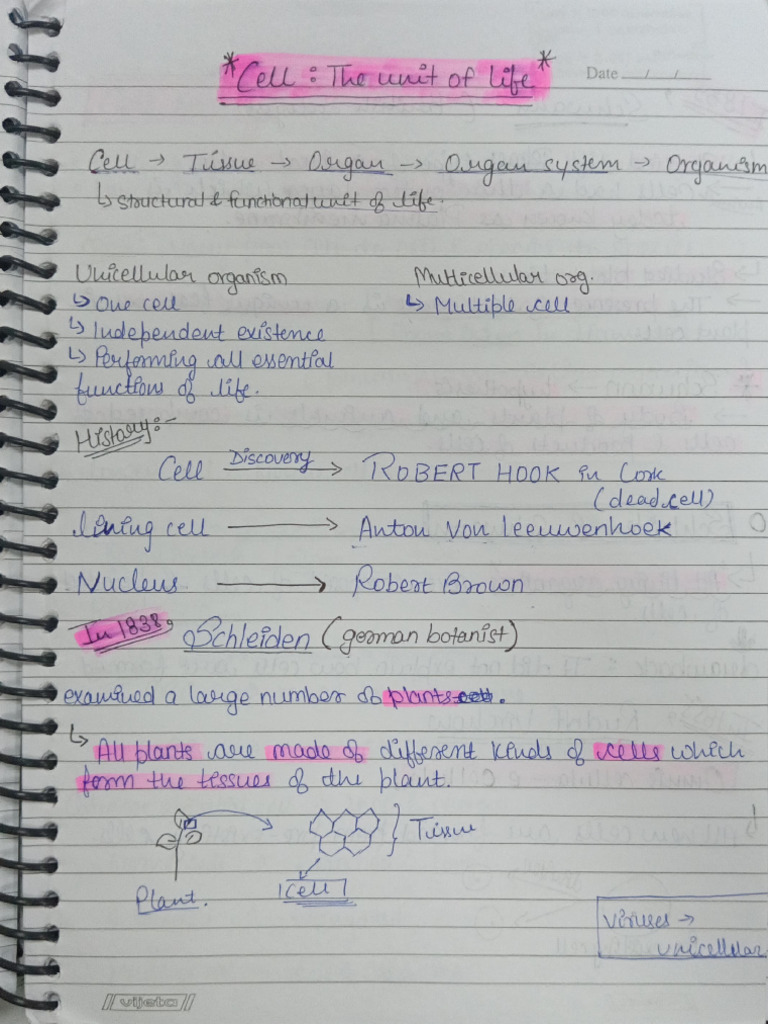 *Cell : The unit of life*
Date __/__/__
Cell → Tissue → Organ → Organ system → Organism
↳ Structural & functional unit of life.
Unicellular organism
Multicellular org.
↳ One cell
↳ Multiple cell
↳ Independent existence
↳ Performing all essential
functions of life.
History:-
Cell Discovery → ROBERT HOOK in Cork
(dead cell)
Living cell → Anton Von Leeuwenhoek
Nucleus → Robert Brown
In 1838, Schleiden (german botanist)
examined a large number of plants cell.
↳ All plants are made of different kinds of cells which
form the tissues of the plant.
} Tissue
Plant.
Cell
Viruses →
unicellular
vijeta